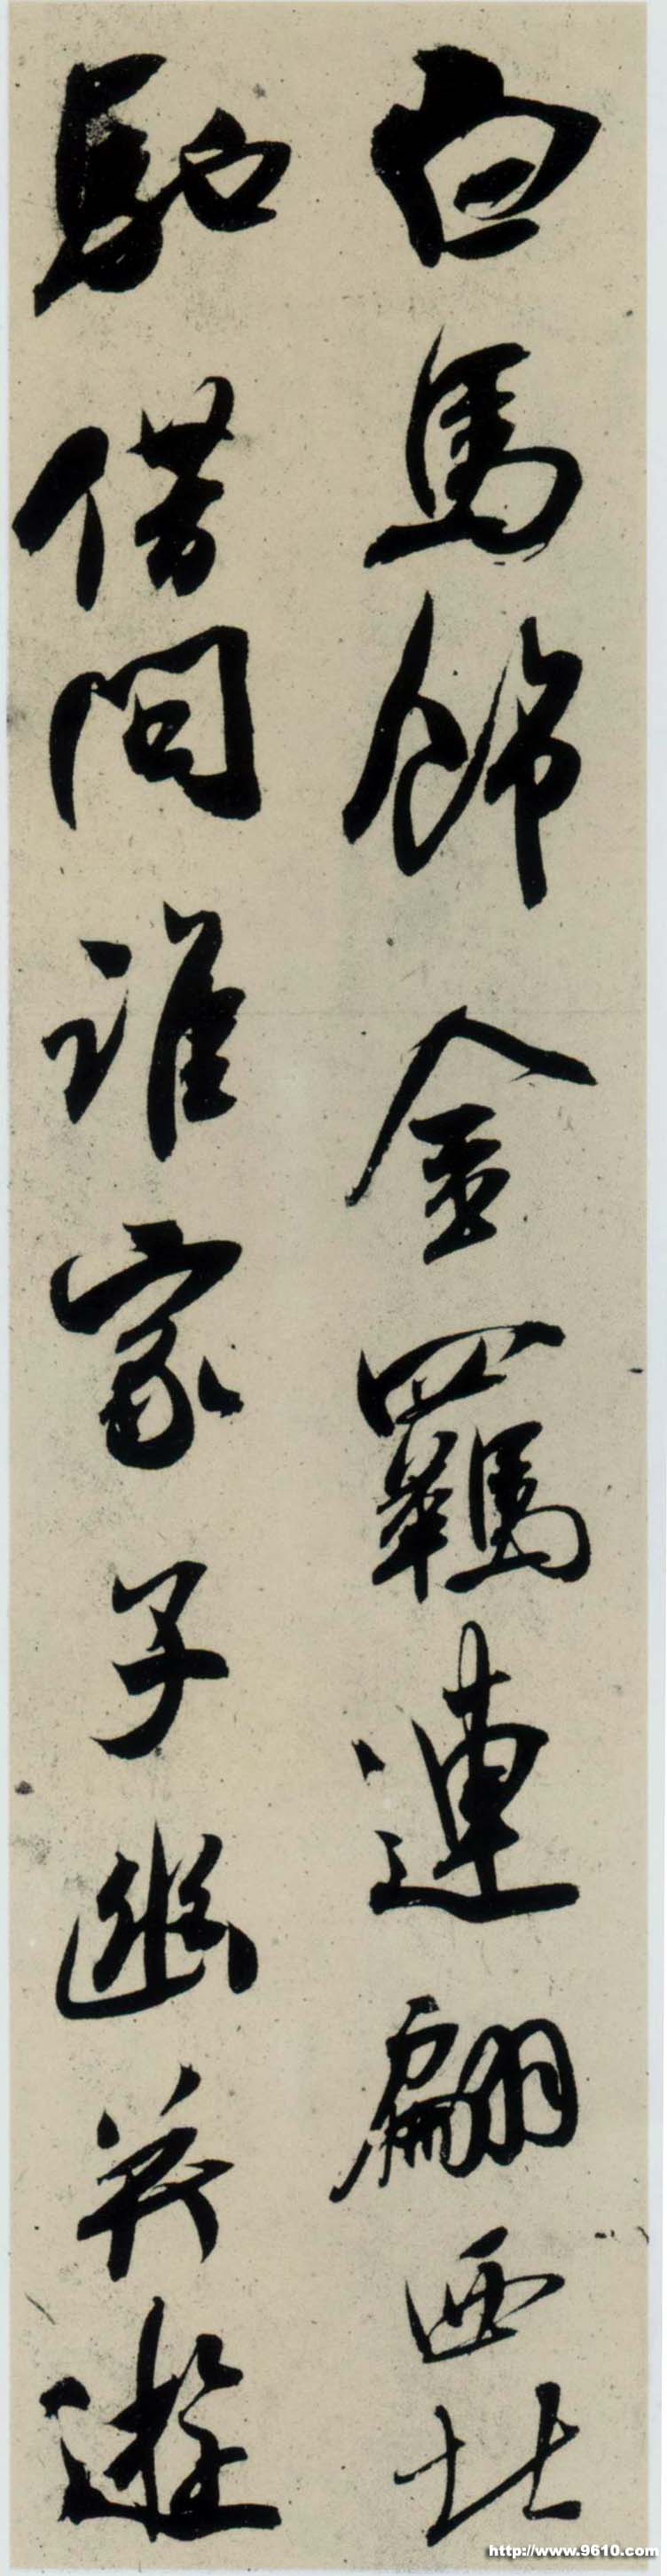 白馬飾金羈連翩西北
馳借問誰家子幽并遊
http://www.9610.com